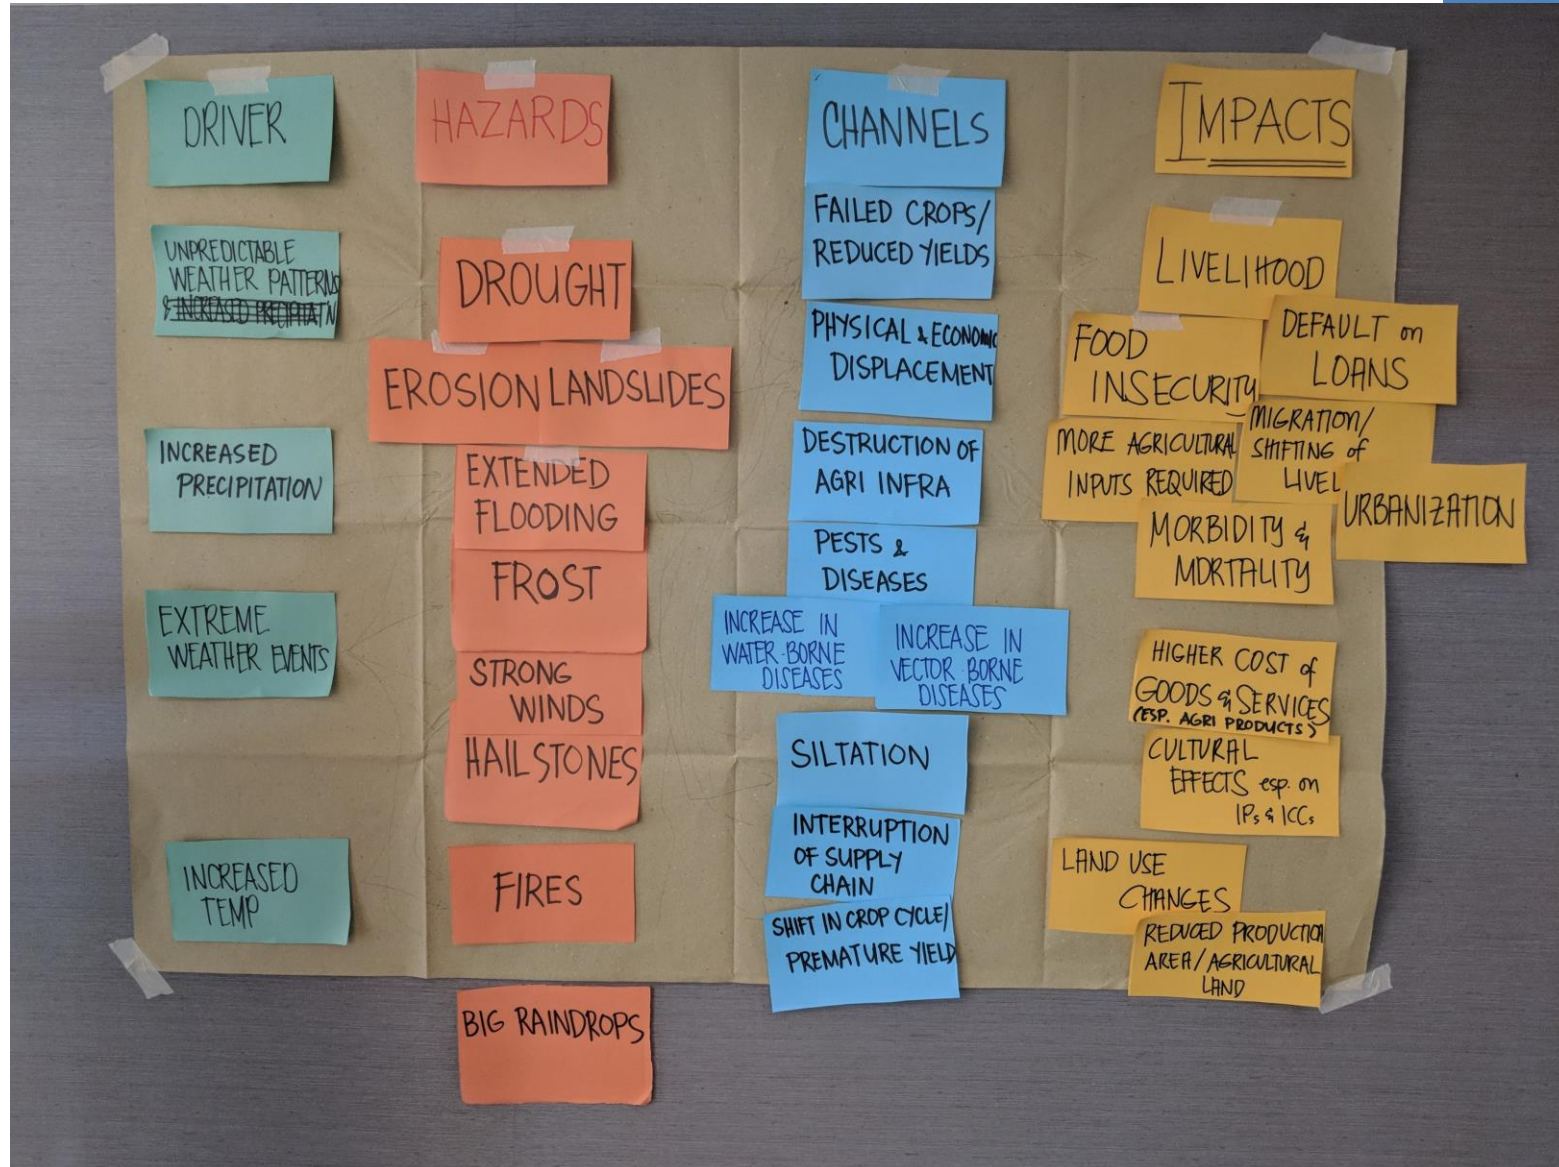 DRIVER
UNPREDICTABLE
WEATHER PATTERNS
& INCREASED PRECIPITATN
INCREASED
PRECIPITATION
EXTREME
WEATHER EVENTS
INCREASED
TEMP
HAZARDS
DROUGHT
EROSION
LANDSLIDES
EXTENDED
FLOODING
FROST
STRONG
WINDS
HAILSTONES
FIRES
BIG RAINDROPS
CHANNELS
FAILED CROPS/
REDUCED YIELDS
PHYSICAL & ECONOMIC
DISPLACEMENT
DESTRUCTION OF
AGRI INFRA
PESTS &
DISEASES
INCREASE IN
WATER-BORNE
DISEASES
INCREASE IN
VECTOR-BORNE
DISEASES
SILTATION
INTERRUPTION
OF SUPPLY
CHAIN
SHIFT IN CROP CYCLE/
PREMATURE YIELD
IMPACTS
LIVELIHOOD
FOOD
INSECURITY
DEFAULT on
LOANS
MORE AGRICULTURAL
INPUTS REQUIRED
MIGRATION/
SHIFTING of
LIVEL
URBANIZATION
MORBIDITY &
MORTALITY
HIGHER COST of
GOODS & SERVICES
(ESP. AGRI PRODUCTS)
CULTURAL
EFFECTS esp. on
IPs & ICCs
LAND USE
CHANGES
REDUCED PRODUCTION
AREA/AGRICULTURAL
LAND